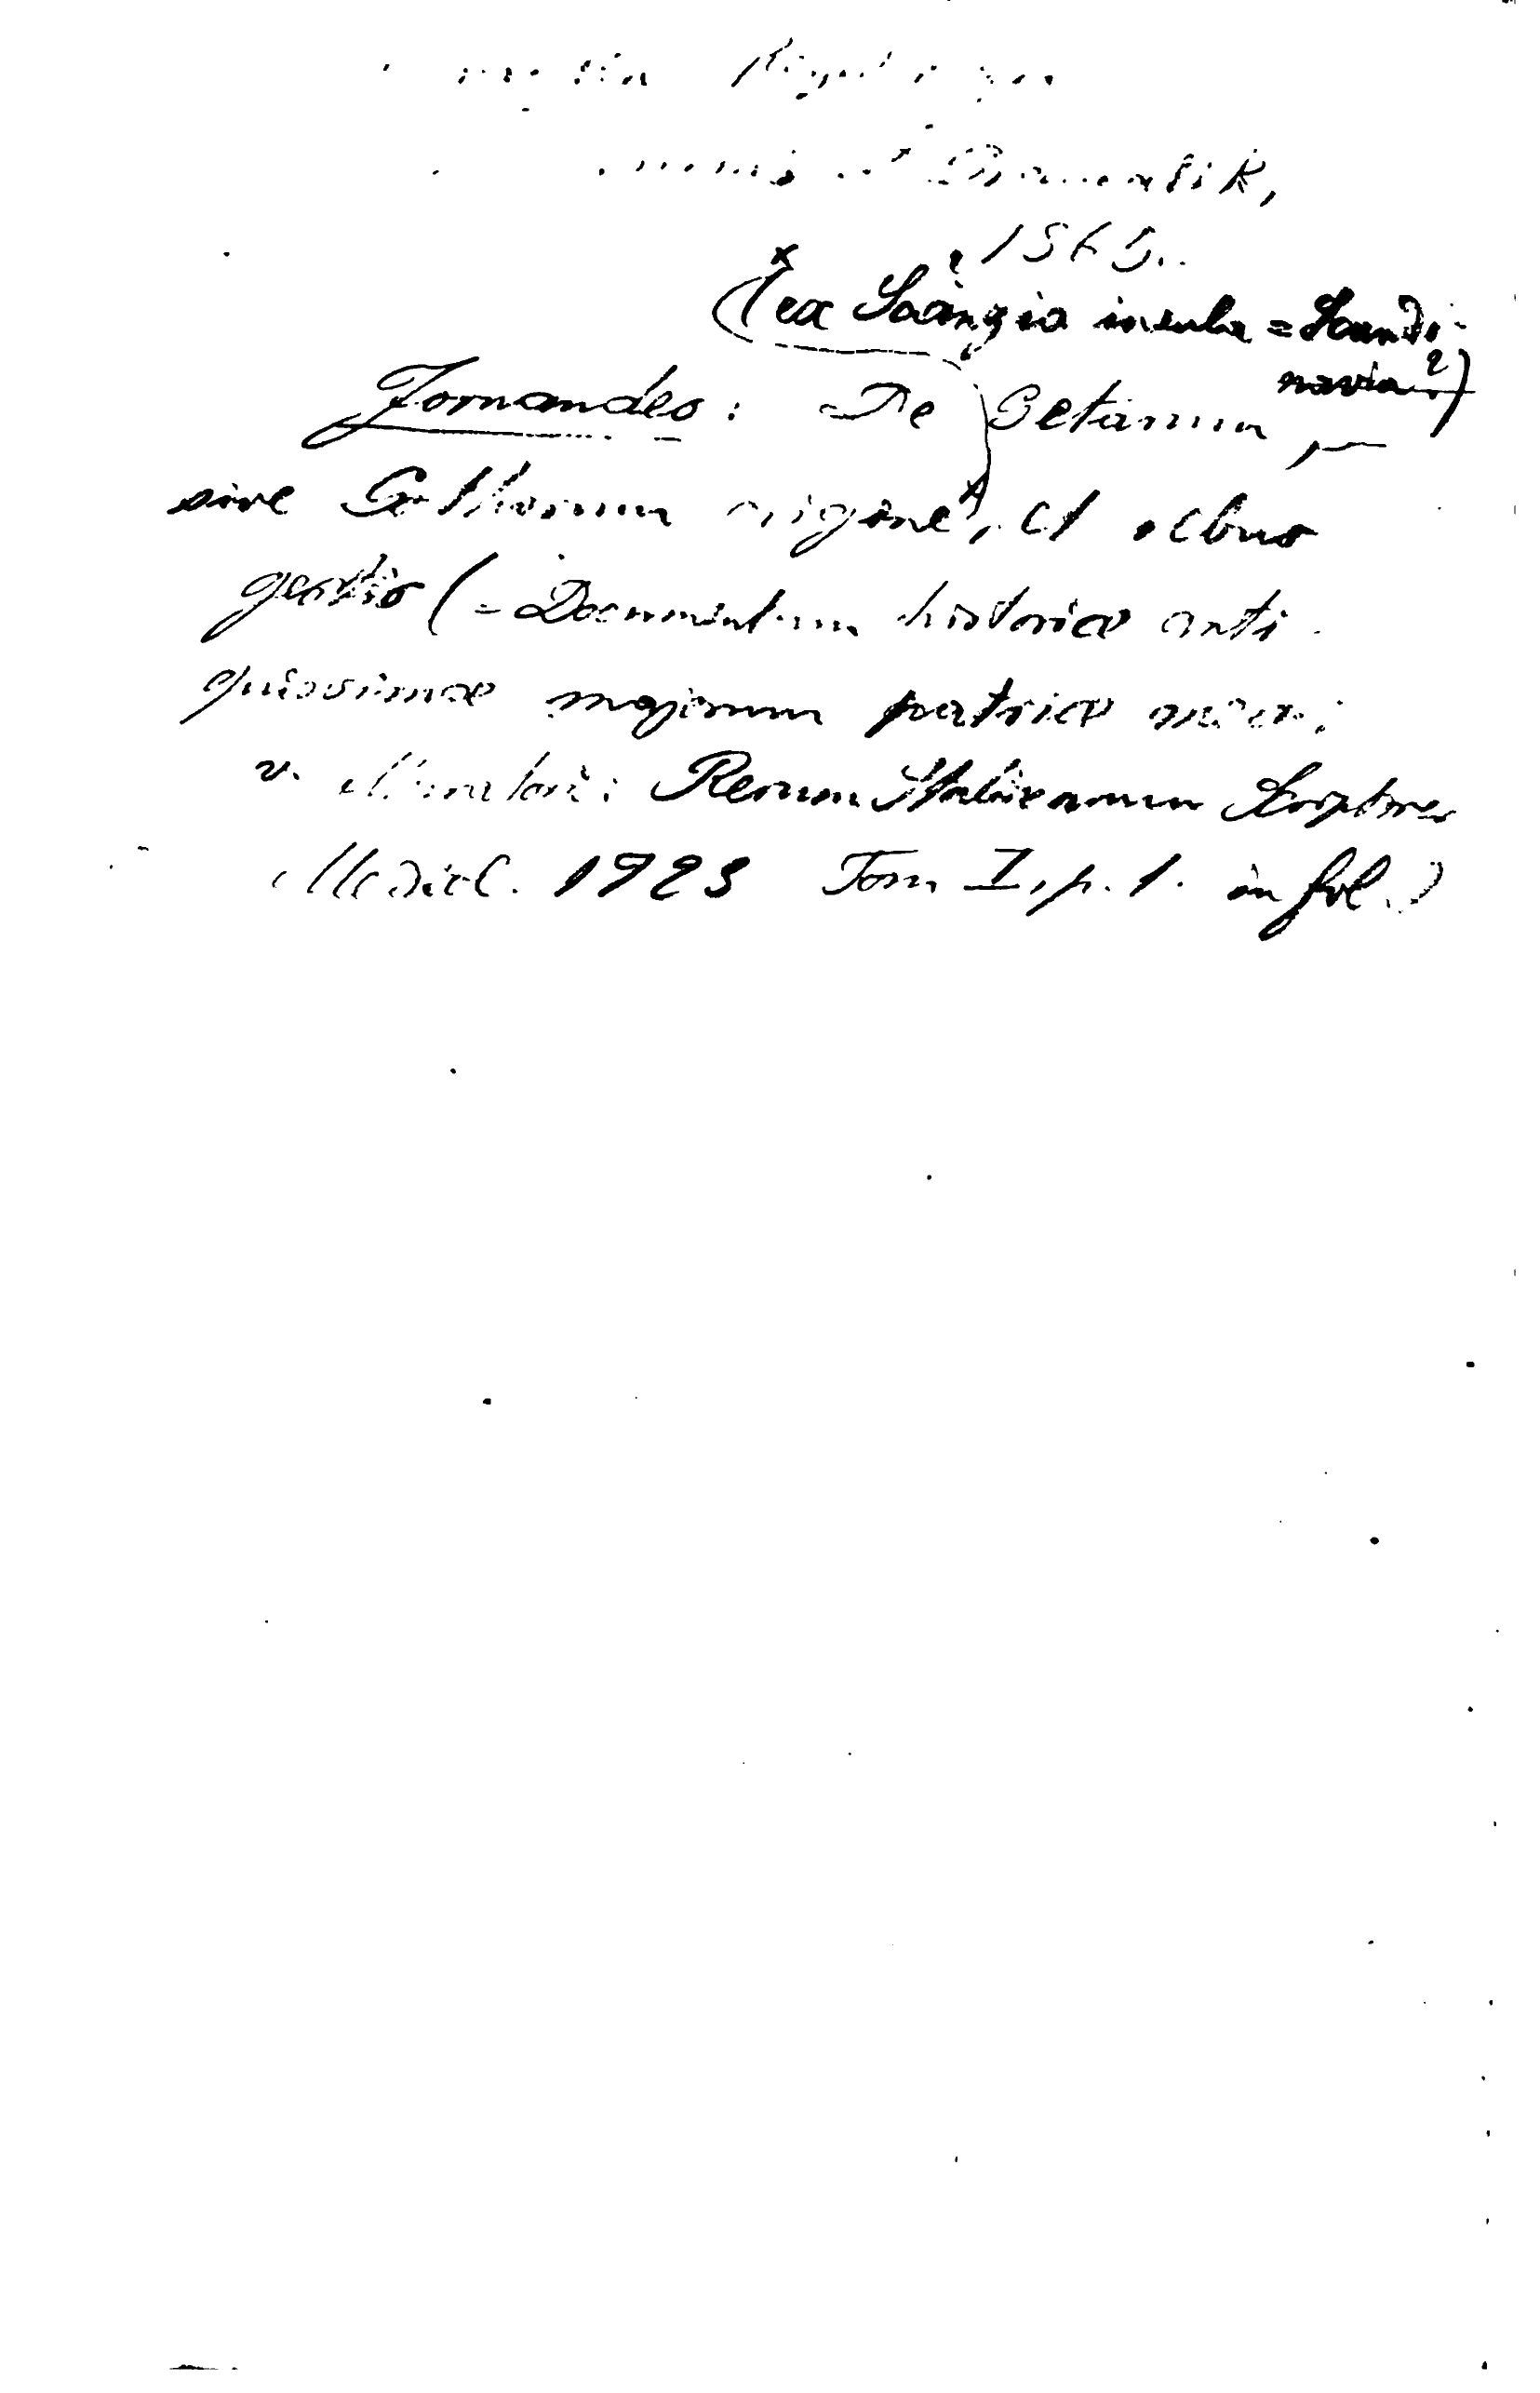 1865.
(ex Scanzia insula = Scandi-
navia?)
Jornandes: De Getarum
sive Gothorum origine, et rebus
gestis (= Documentum historiæ anti-
quissimæ majorum patriæ meæ;
v. Muratori: Rerum Italicarum Scriptores
Mediol. 1723 Tom I, p. 1. in fol.)